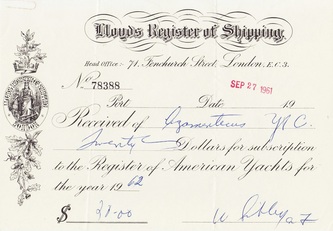 Lloyds Register of Shipping.
Head Office:- 71, Fenchurch Street, London, E.C.3.
No 78388
SEP 27 1961
Port Date 19
Received of Agamenticus Y C.
Twenty Dollars for subscription
to the Register of American Yachts for
the year 1962
$